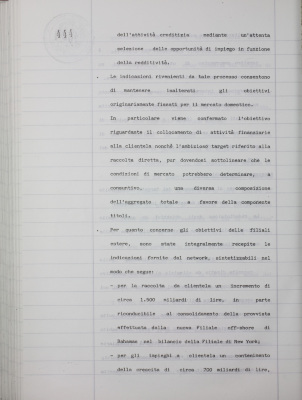 444
dell'attività creditizia mediante un'attenta
selezione delle opportunità di impiego in funzione
della redditività.
Le indicazioni rivenienti da tale processo consentono
di mantenere inalterati gli obiettivi
originariamente fissati per il mercato domestico.
In particolare viene confermato l'obiettivo
riguardante il collocamento di attività finanziarie
alla clientela nonchè l'ambizioso target riferito alla
raccolta diretta, pur dovendosi sottolineare che le
condizioni di mercato potrebbero determinare, a
consuntivo, una diversa composizione
dell'aggregato totale a favore della componente
titoli.
Per quanto concerne gli obiettivi delle filiali
estere, sono state integralmente recepite le
indicazioni fornite dal network, sintetizzabili nel
modo che segue:
- per la raccolta da clientela un incremento di
circa 1.900 miliardi di lire, in parte
riconducibile al consolidamento della provvista
effettuata dalla nuova Filiale off-shore di
Bahamas nel bilancio della Filiale di New York;
- per gli impieghi a clientela un contenimento
della crescita di circa 700 miliardi di lire,